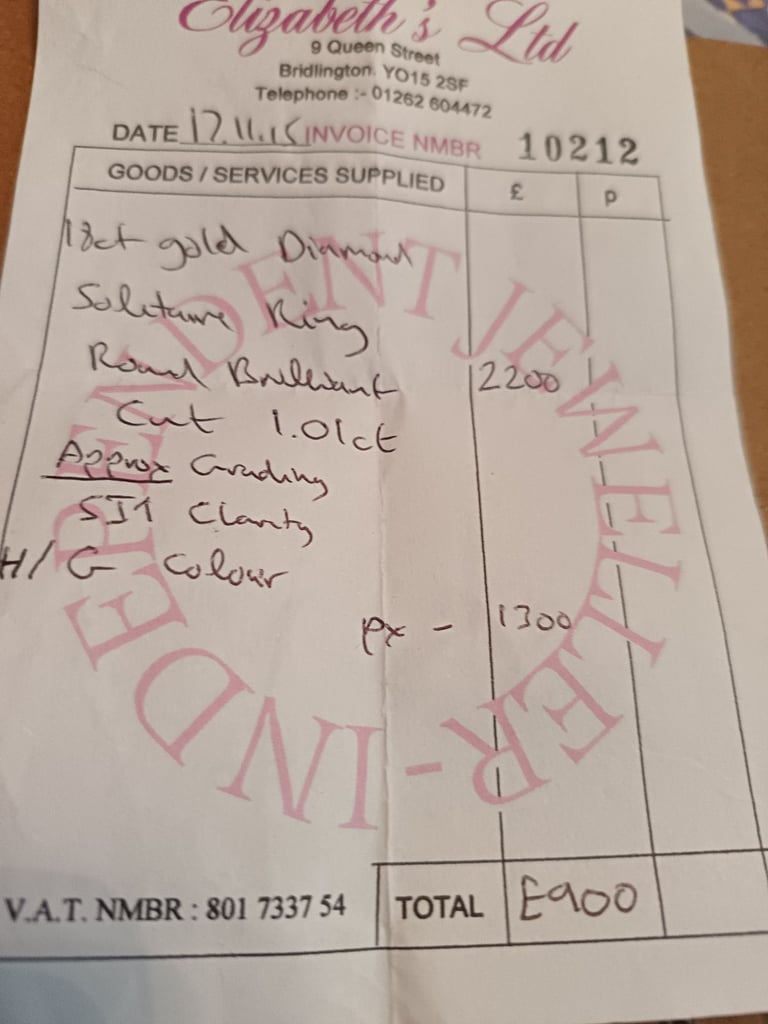 Elizabeth's Ltd
9 Queen Street
Bridlington. YO15 2SF
Telephone :- 01262 604472
DATE 17.11.15 INVOICE NMBR 10212
GOODS / SERVICES SUPPLIED £ p
18ct gold Diamond
Solitaire Ring
Round Brilliant 2200
Cut 1.01ct
Approx Grading
SI1 Clarity
H/G Colour
px - 1300
INDEPENDENT JEWELLER -
V.A.T. NMBR : 801 7337 54 TOTAL £900